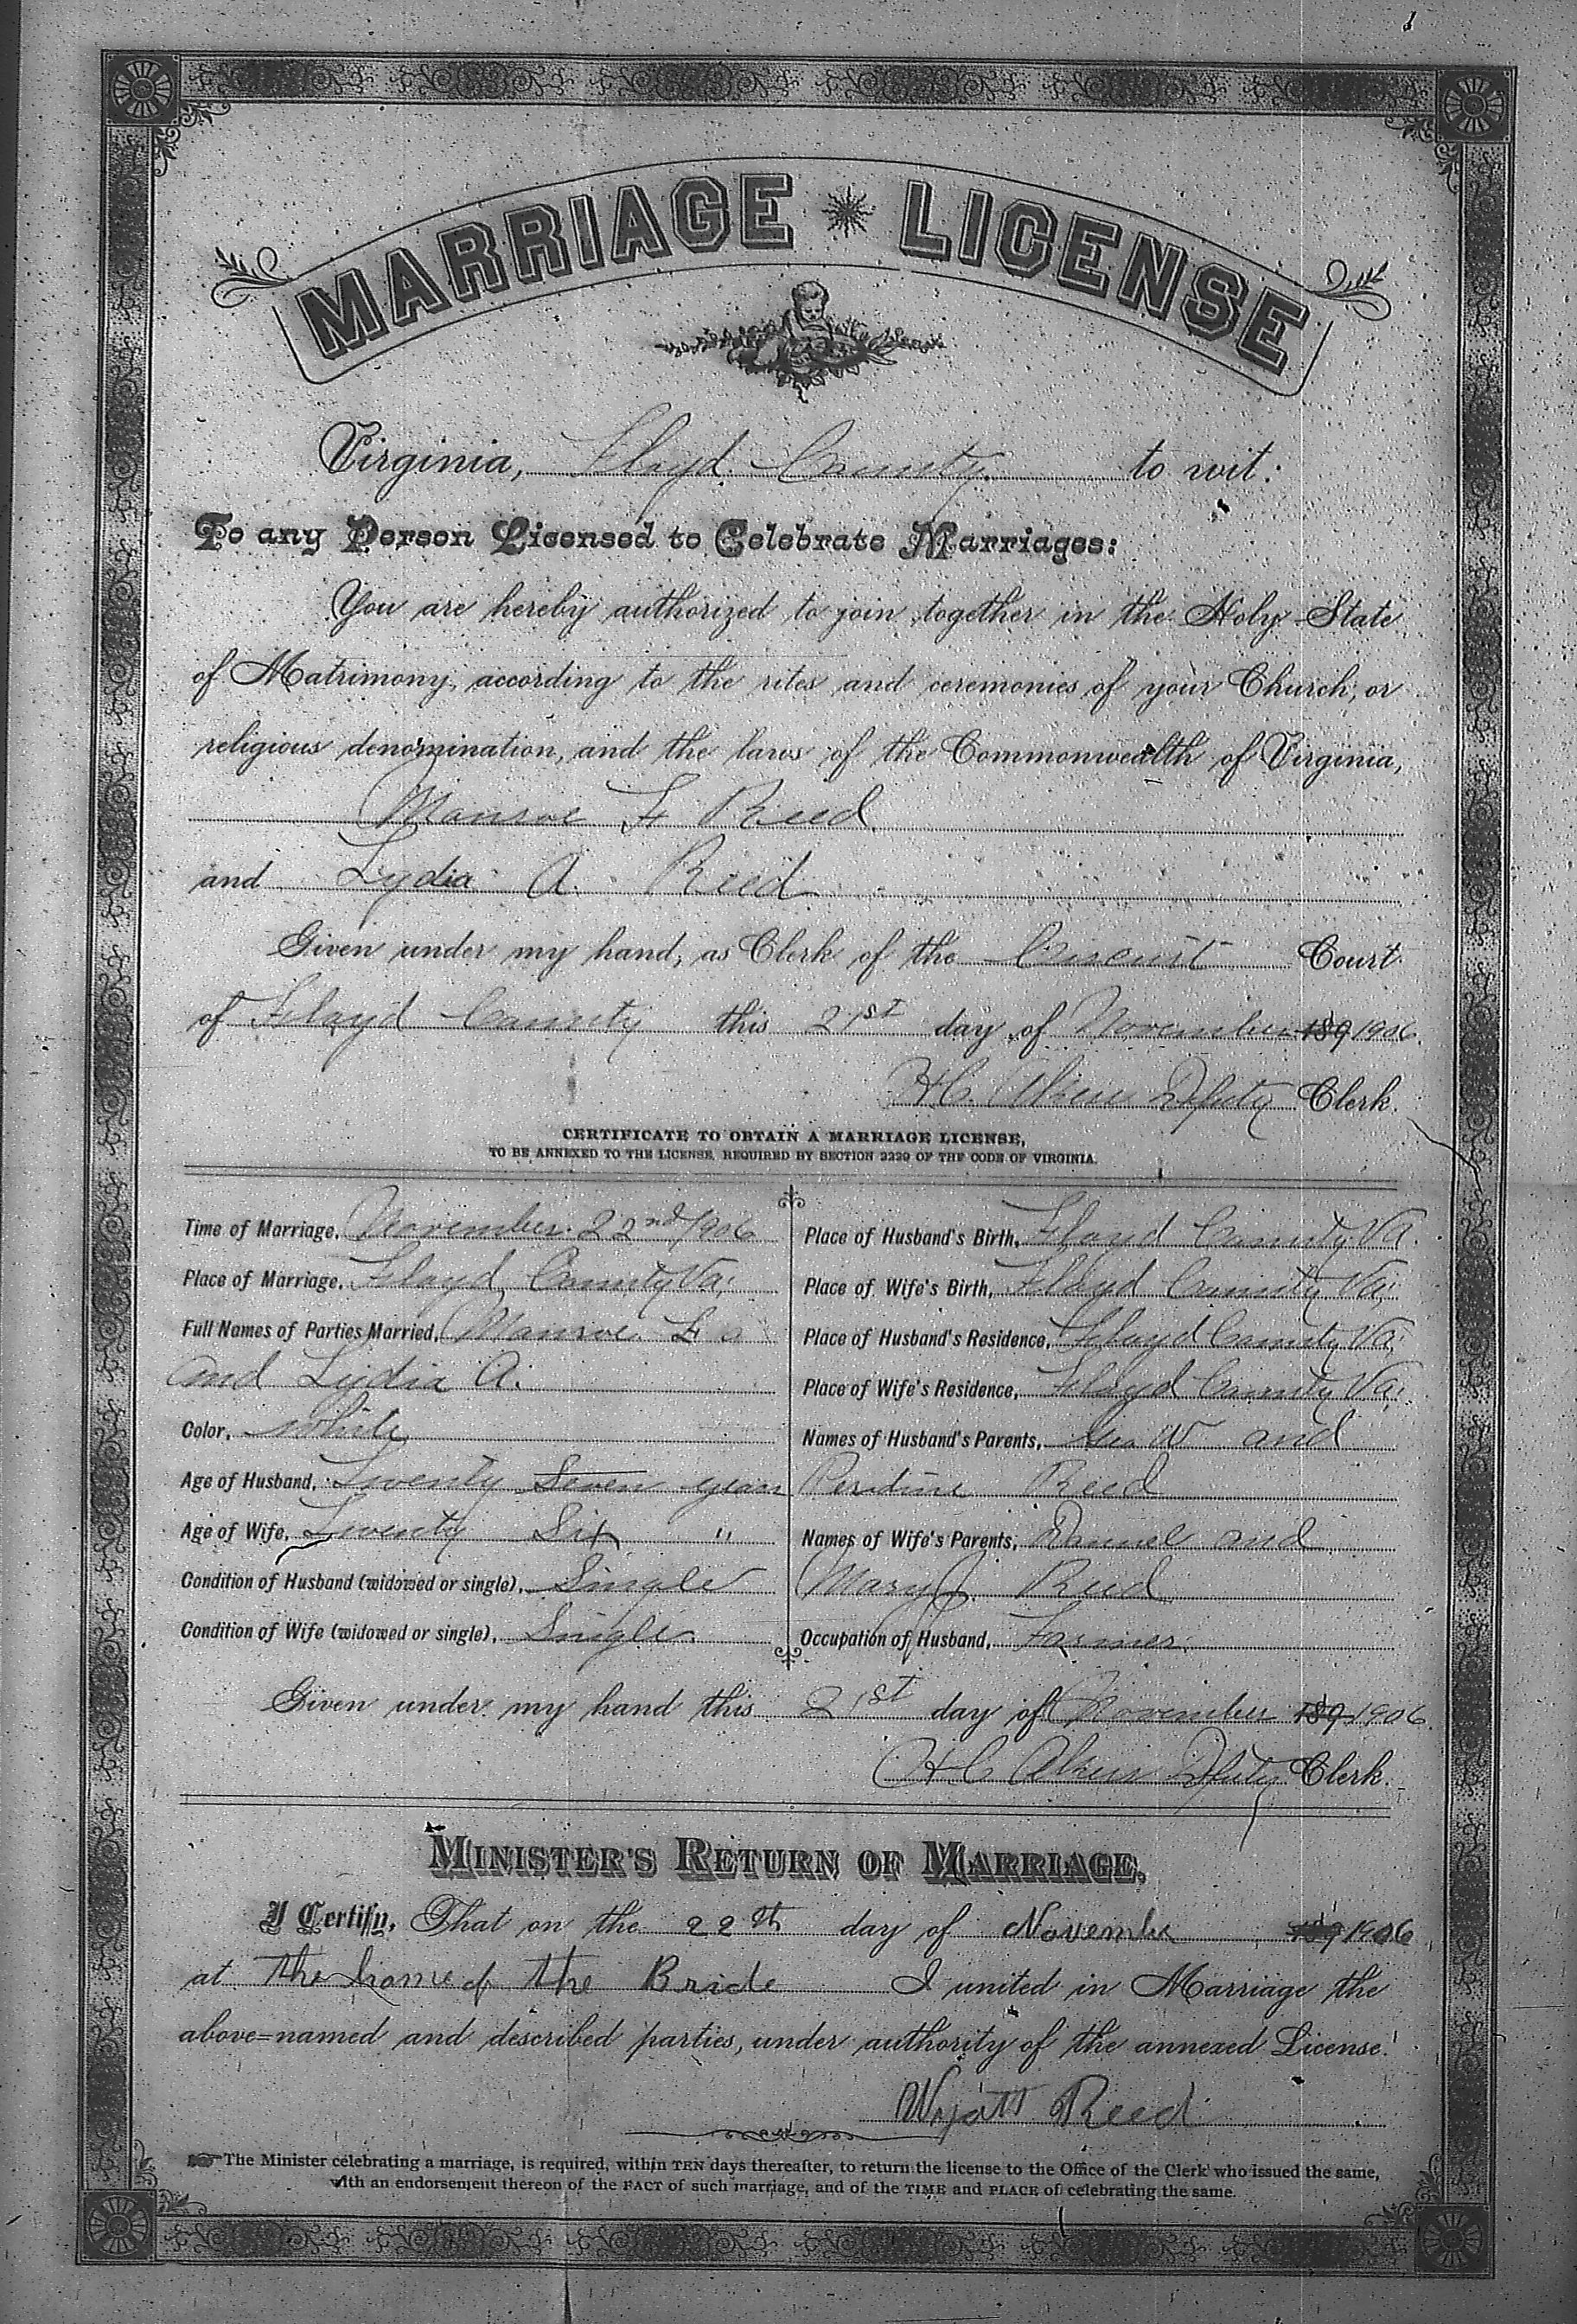 MARRIAGE LICENSE
Virginia, Floyd County to wit:
To any Person Licensed to Celebrate Marriages:
You are hereby authorized to join together in the Holy State
of Matrimony, according to the rites and ceremonies of your Church, or
religious denomination, and the laws of the Commonwealth of Virginia,
Monroe F Reed
and Lydia A. Reed
Given under my hand, as Clerk of the Circuit Court
of Floyd County this 21st day of November 189 1906
H.C. Deputy Clerk.
CERTIFICATE TO OBTAIN A MARRIAGE LICENSE,
TO BE ANNEXED TO THE LICENSE, REQUIRED BY SECTION 2229 OF THE CODE OF VIRGINIA.
Time of Marriage, November 22nd 1906
Place of Marriage, Floyd County Va.
Full Names of Parties Married, Monroe F
and Lydia A.
Color, white
Age of Husband, Twenty Seven years
Age of Wife, Twenty Six "
Condition of Husband (widowed or single), Single
Condition of Wife (widowed or single), Single
Place of Husband's Birth, Floyd County Va.
Place of Wife's Birth, Floyd County Va.
Place of Husband's Residence, Floyd County Va.
Place of Wife's Residence, Floyd County Va.
Names of Husband's Parents, Geo W and
Reed
Names of Wife's Parents, and
Mary J. Reed
Occupation of Husband, Farmer.
Given under my hand this 21st day of November 189 1906.
H C Deputy Clerk.
MINISTER'S RETURN OF MARRIAGE.
I Certify, That on the 22th day of Novembe 189 1906
at the home of the Bride I united in Marriage the
above=named and described parties, under authority of the annexed License.
Wyatt Reed
The Minister celebrating a marriage, is required, within TEN days thereafter, to return the license to the Office of the Clerk who issued the same,
with an endorsement thereon of the FACT of such marriage, and of the TIME and PLACE of celebrating the same.